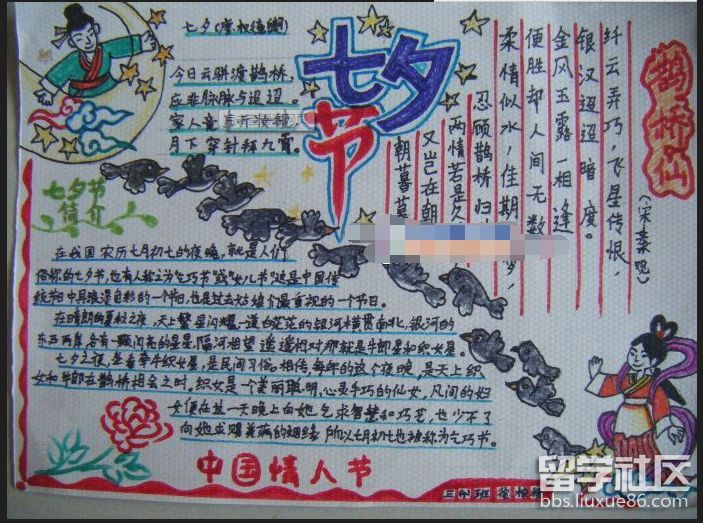 七夕节
今日云骈渡鹊桥,
应非脉脉与迢迢。
家人竟
月下穿针拜九霄。
鹊桥仙
纤云弄巧,飞星传恨,
银汉迢迢暗度。
金风玉露一相逢
便胜却人间无数
柔情似水,佳期 梦,
忍顾鹊桥归
两情若是久
又岂在朝
朝暮
七夕节
简介
在我国农历七月初七的夜晚,就是人们
俗称的七夕节,也有人称之为"乞巧节"或"女儿节"这是中国传
统节日中具浪漫色彩的一个节日,也是过去姑娘们最重视的一个节日。
在晴朗的夏秋之夜,天上繁星闪耀一道白茫茫的银河横贯南北,银河的
东西两岸,各有一颗闪亮的星星,隔河相望 遥遥相对那就是牛郎星和织女星。
七夕之夜,坐看牵牛织女星,是民间习俗。相传,每年的这个夜晚,是天上织
女和牛郎在鹊桥相会之时。织女是一个美丽聪明,心灵手巧的仙女,凡间的妇
女便在这一天晚上向她乞求智慧和巧艺,也少不了
向她求赐美满的姻缘 所以七月初七也被称为乞巧节。
中国情人节
留学社区
bbs.liuxue86.com